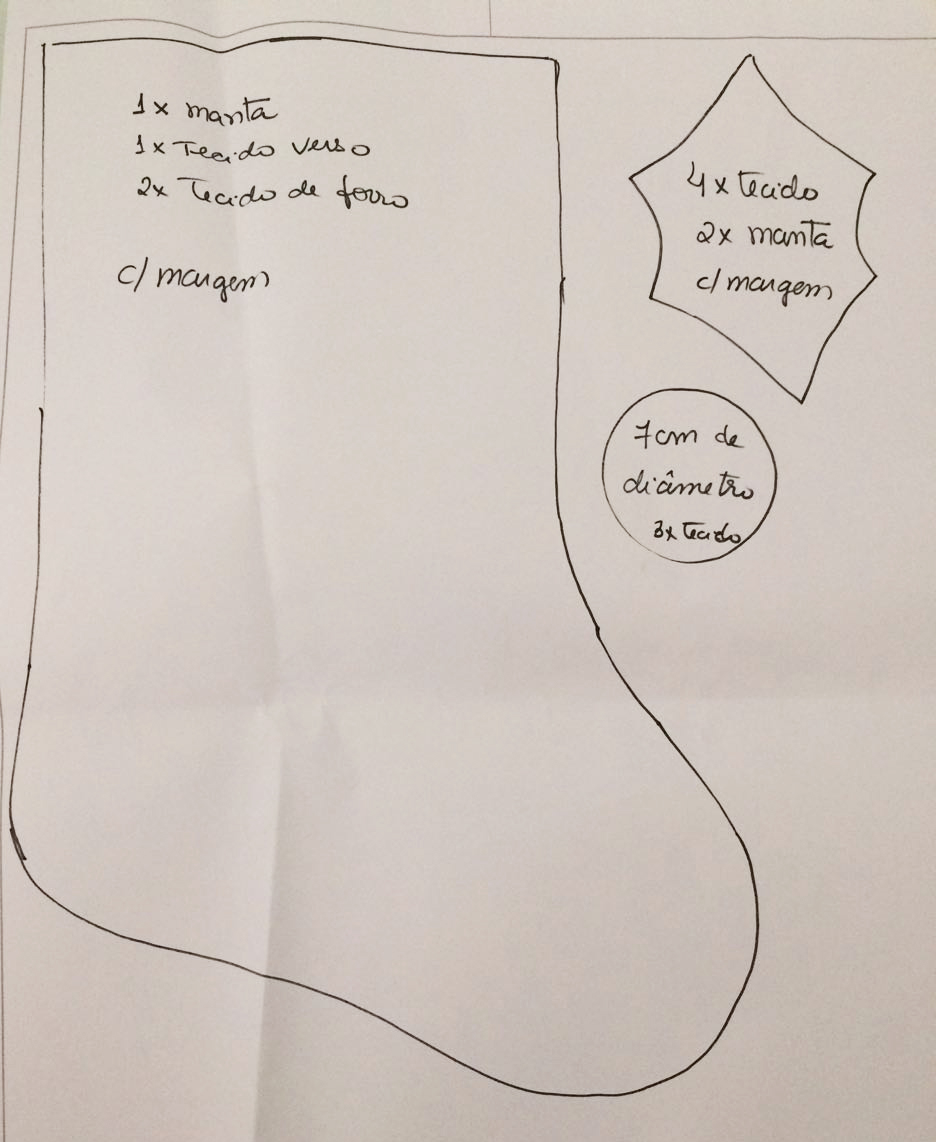 1x manta
1x Tecido verso
2x Tecido de forro
c/ margem
4x tecido
2x manta
c/ margem
7cm de
diâmetro
3x tecido